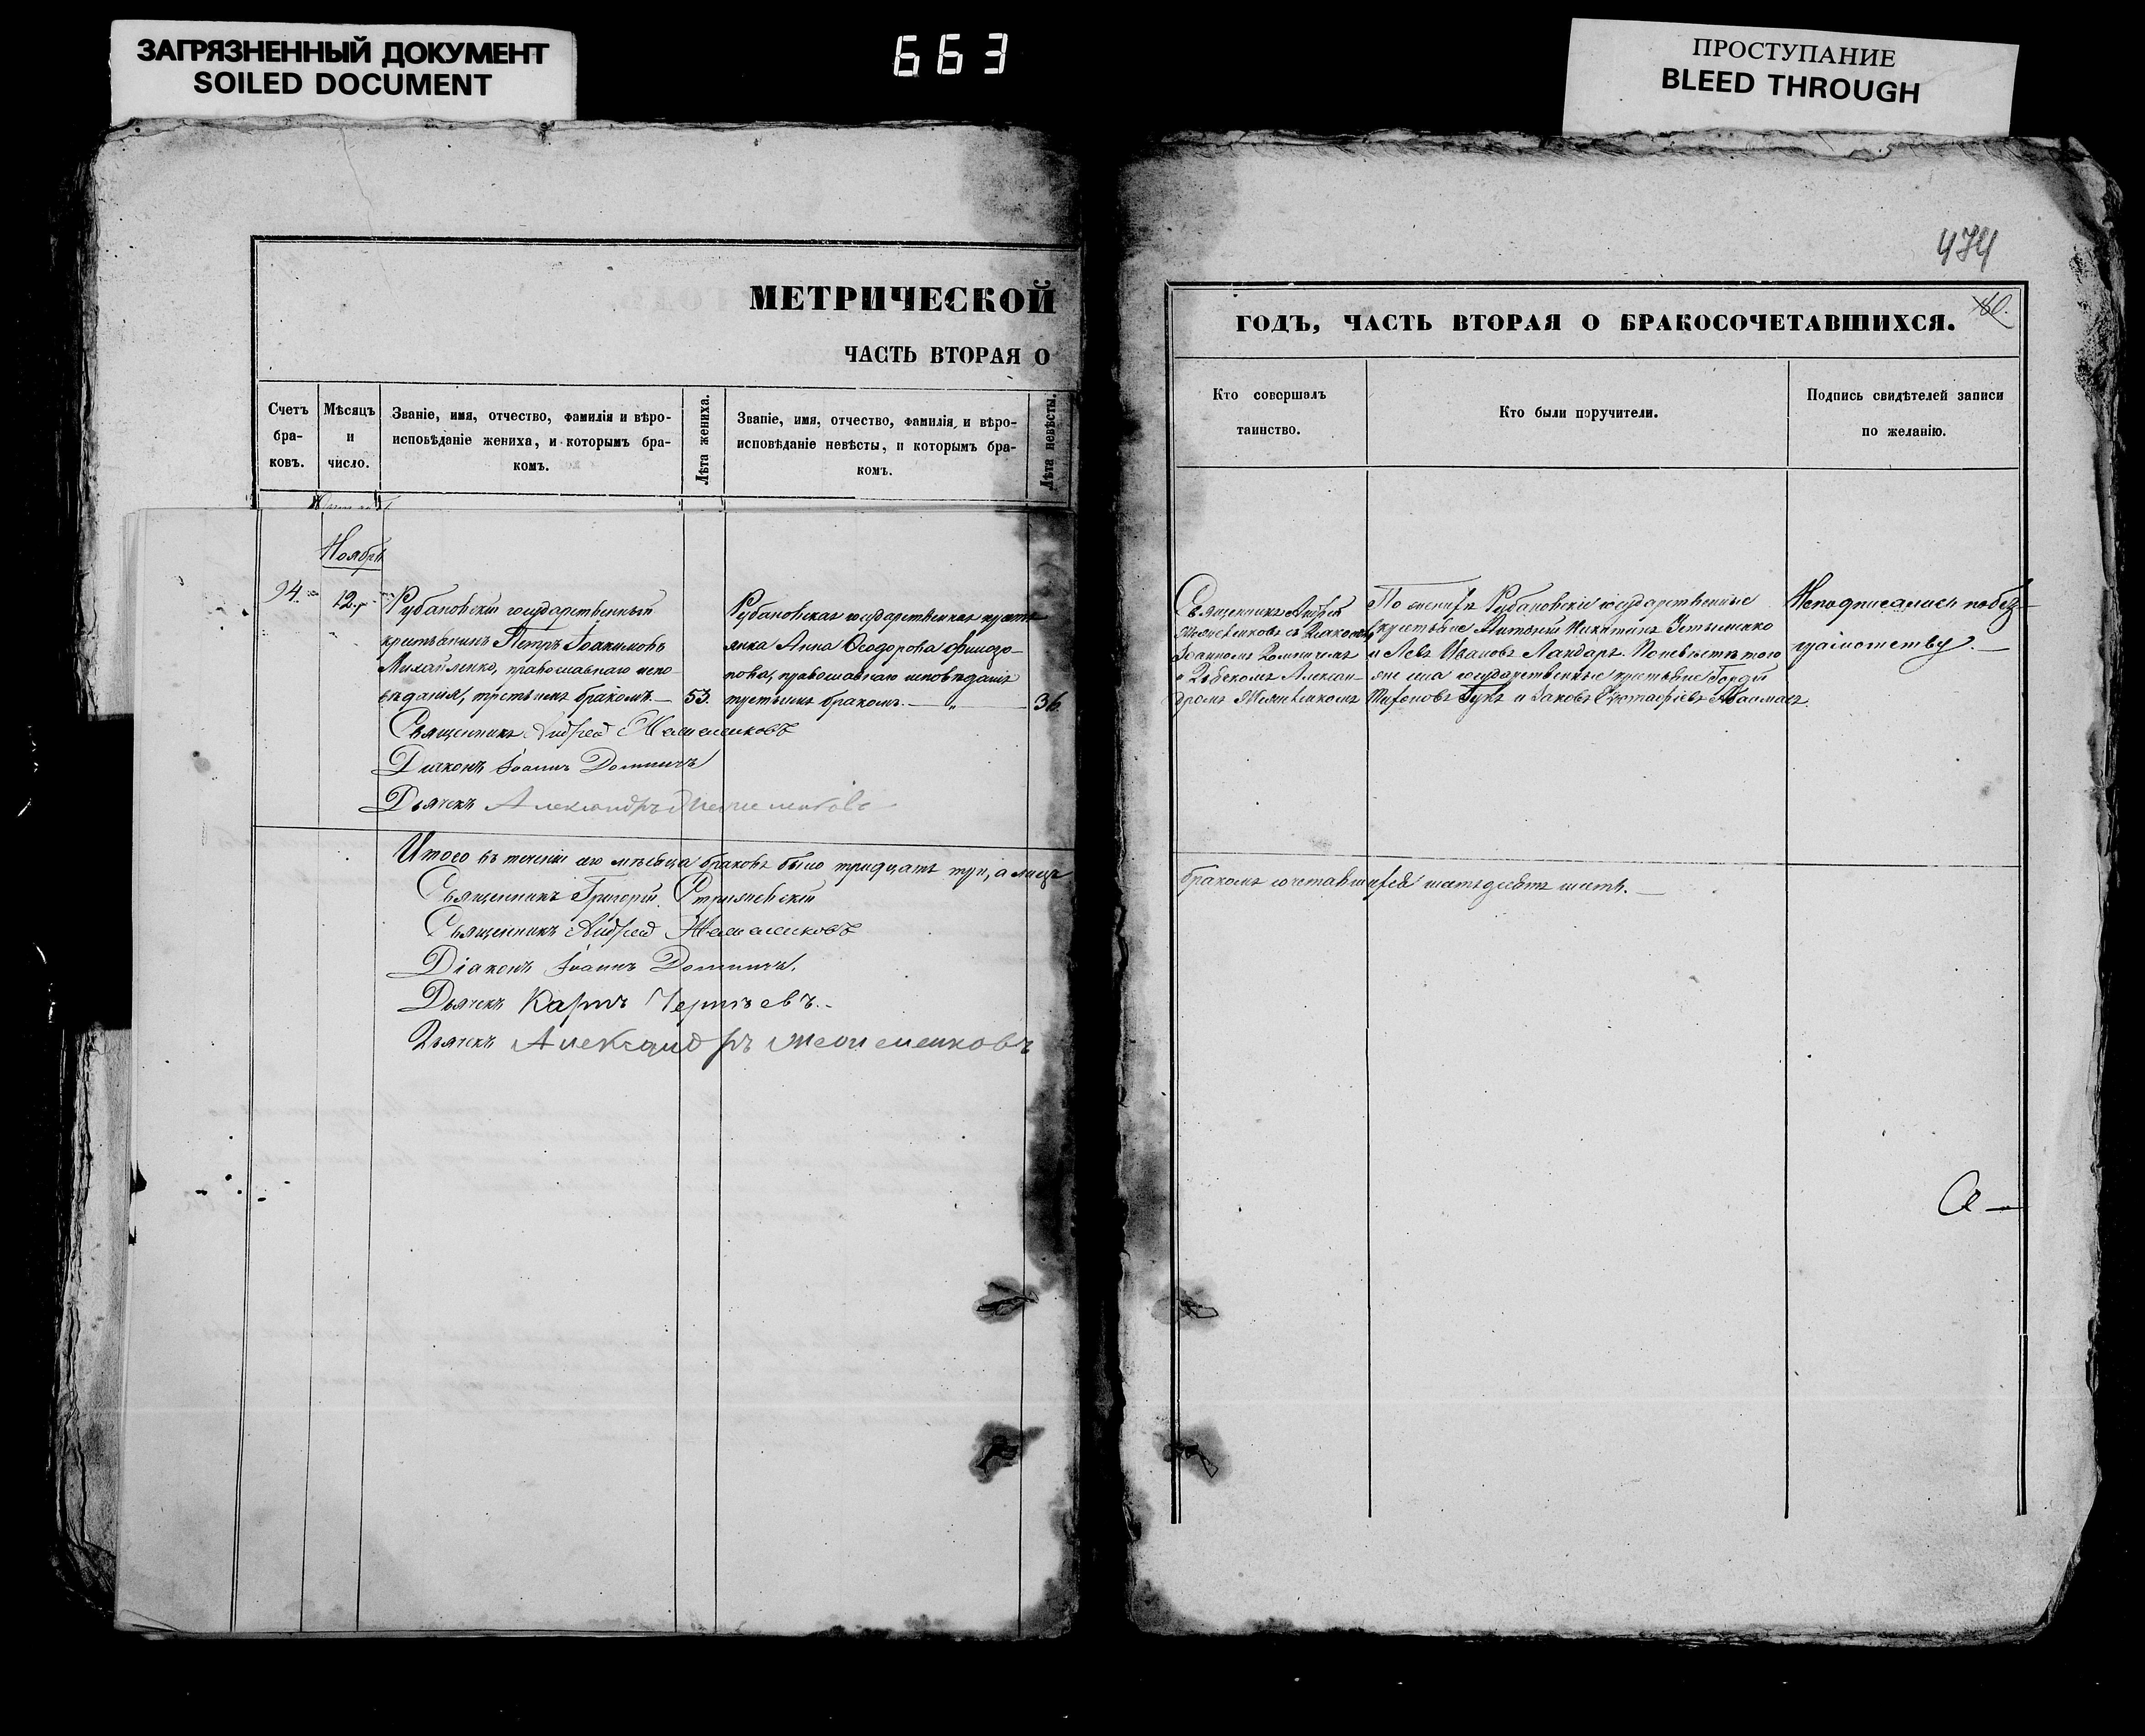 ЗАГРЯЗНЕННЫЙ ДОКУМЕНТ
SOILED DOCUMENT
663
ПРОСТУПАНИЕ
BLEED THROUGH
МЕТРИЧЕСКОЙ
ЧАСТЬ ВТОРАЯ О
Счетъ бра-ковъ.
Мѣсяцъ и число.
Званіе, имя, отчество, фамилія и вѣро-
исповѣданіе жениха, и которымъ бра-
комъ.
Лѣта жениха.
Званіе, имя, отчество, фамилія, и вѣро-
исповѣданіе невѣсты, и которымъ бра-
комъ.
Лѣта невѣсты.
Ноябрь
94.
12.
Рубановскій государственный
крестьянинъ Петръ Іоакимовъ
Михайленко, православнаго испо-
вѣданія, третьимъ бракомъ.
53.
Рубановская государственная кресть
янка Анна Ѳеодорова
православнаго исповѣданія
третьимъ бракомъ.
36
Священникъ Андрей
Діаконъ Іоаннъ
Дьячекъ Александръ
Итого въ теченіи сего мѣсяца браковъ было тридцать три, а лицъ
Священникъ Григорій
Священникъ Андрей
Діаконъ Іоаннъ
Дьячекъ Карпъ
Дьячекъ Александръ
474
60.
ГОДЪ, ЧАСТЬ ВТОРАЯ О БРАКОСОЧЕТАВШИХСЯ.
Кто совершалъ
таинство.
Кто были поручители.
Подпись свидѣтелей записи
по желанію.
Священникъ Андрей
съ Діакономъ
Іоанномъ
и Дьячкомъ Алексан-
дромъ
По женихѣ Рубановскіе государственные
крестьяне Антоній Никитинъ Устименко
и Левъ Ивановъ Ландаръ. По невѣстѣ того
же села государственные крестьяне Гордій
и Іаковъ
Неподписались по без-
грамотству.
бракомъ сочетавшихся шестьдесятъ шесть.